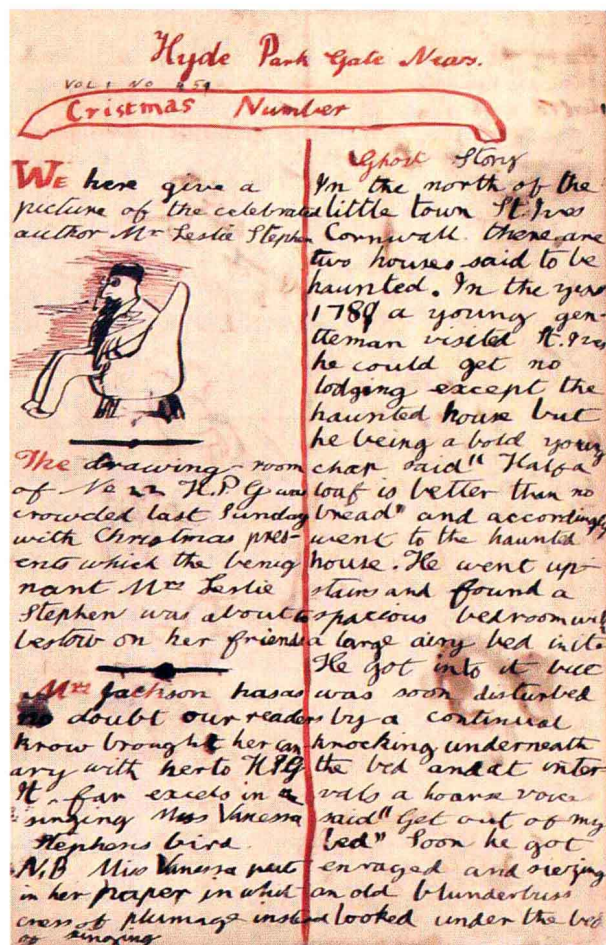 Hyde Park Gate News.
Cristmas Number
We here give a
picture of the celebrated
author Mr Leslie Stephen
The drawing-room
of No 22 H.P.G was
crowded last Sunday
with Christmas pres-
ents which the benig
nant Mrs Leslie
Stephen was about to
bestow on her friends
Mrs Jackson has as
no doubt our readers
know brought her can
ary with her to H.P.G
It far excels in
singing Miss Vanessa
Stephens bird.
N.B Miss Vanessa put
in her paper in whit
cress of plumage instead
of singing
Ghost Story
In the north of the
little town St. Ives
Cornwall. there are
two houses said to be
haunted. In the year
1789 a young gen-
tleman visited St. Ives
he could get no
lodging except the
haunted house but
he being a bold young
chap said "Half a
loaf is better than no
bread" and accordingly
went to the haunted
house. He went up-
stairs and found a
spacious bedroom with
a large airy bed in it.
He got into it but
was soon disturbed
by a continual
knocking underneath
the bed and at inter
vals a hoarse voice
said "Get out of my
bed" Soon he got
enraged and siezing
an old blunderbuss
looked under the bed